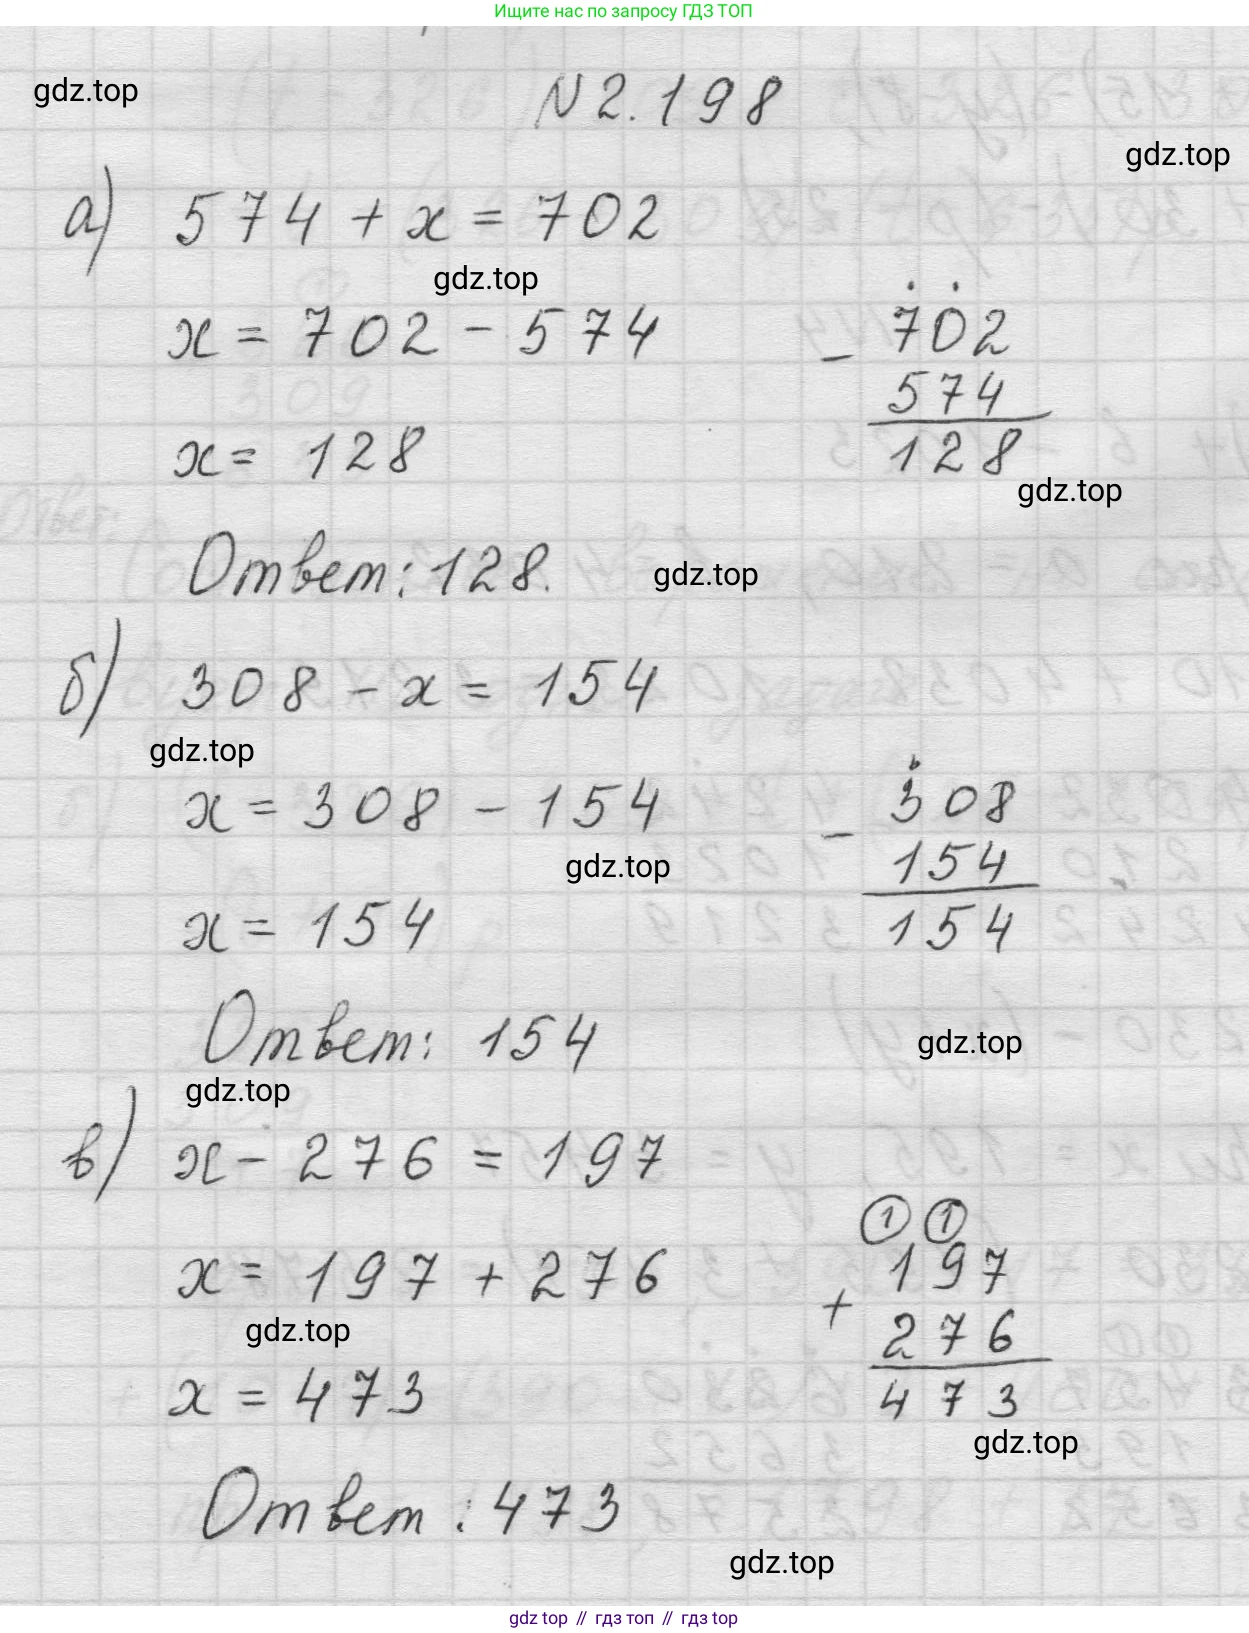 Ищите нас по запросу ГДЗ ТОП
gdz.top
N 2.198
gdz.top
а) 574 + x = 702
gdz.top
x = 702 - 574
702
-
574
128
x = 128
gdz.top
Ответ: 128.
gdz.top
б) 308 - x = 154
gdz.top
x = 308 - 154
308
-
154
154
gdz.top
x = 154
Ответ: 154
gdz.top
gdz.top
в) x - 276 = 197
x = 197 + 276
1 1
197
+
276
473
gdz.top
x = 473
gdz.top
Ответ: 473
gdz.top
gdz top // гдз топ // gdz top